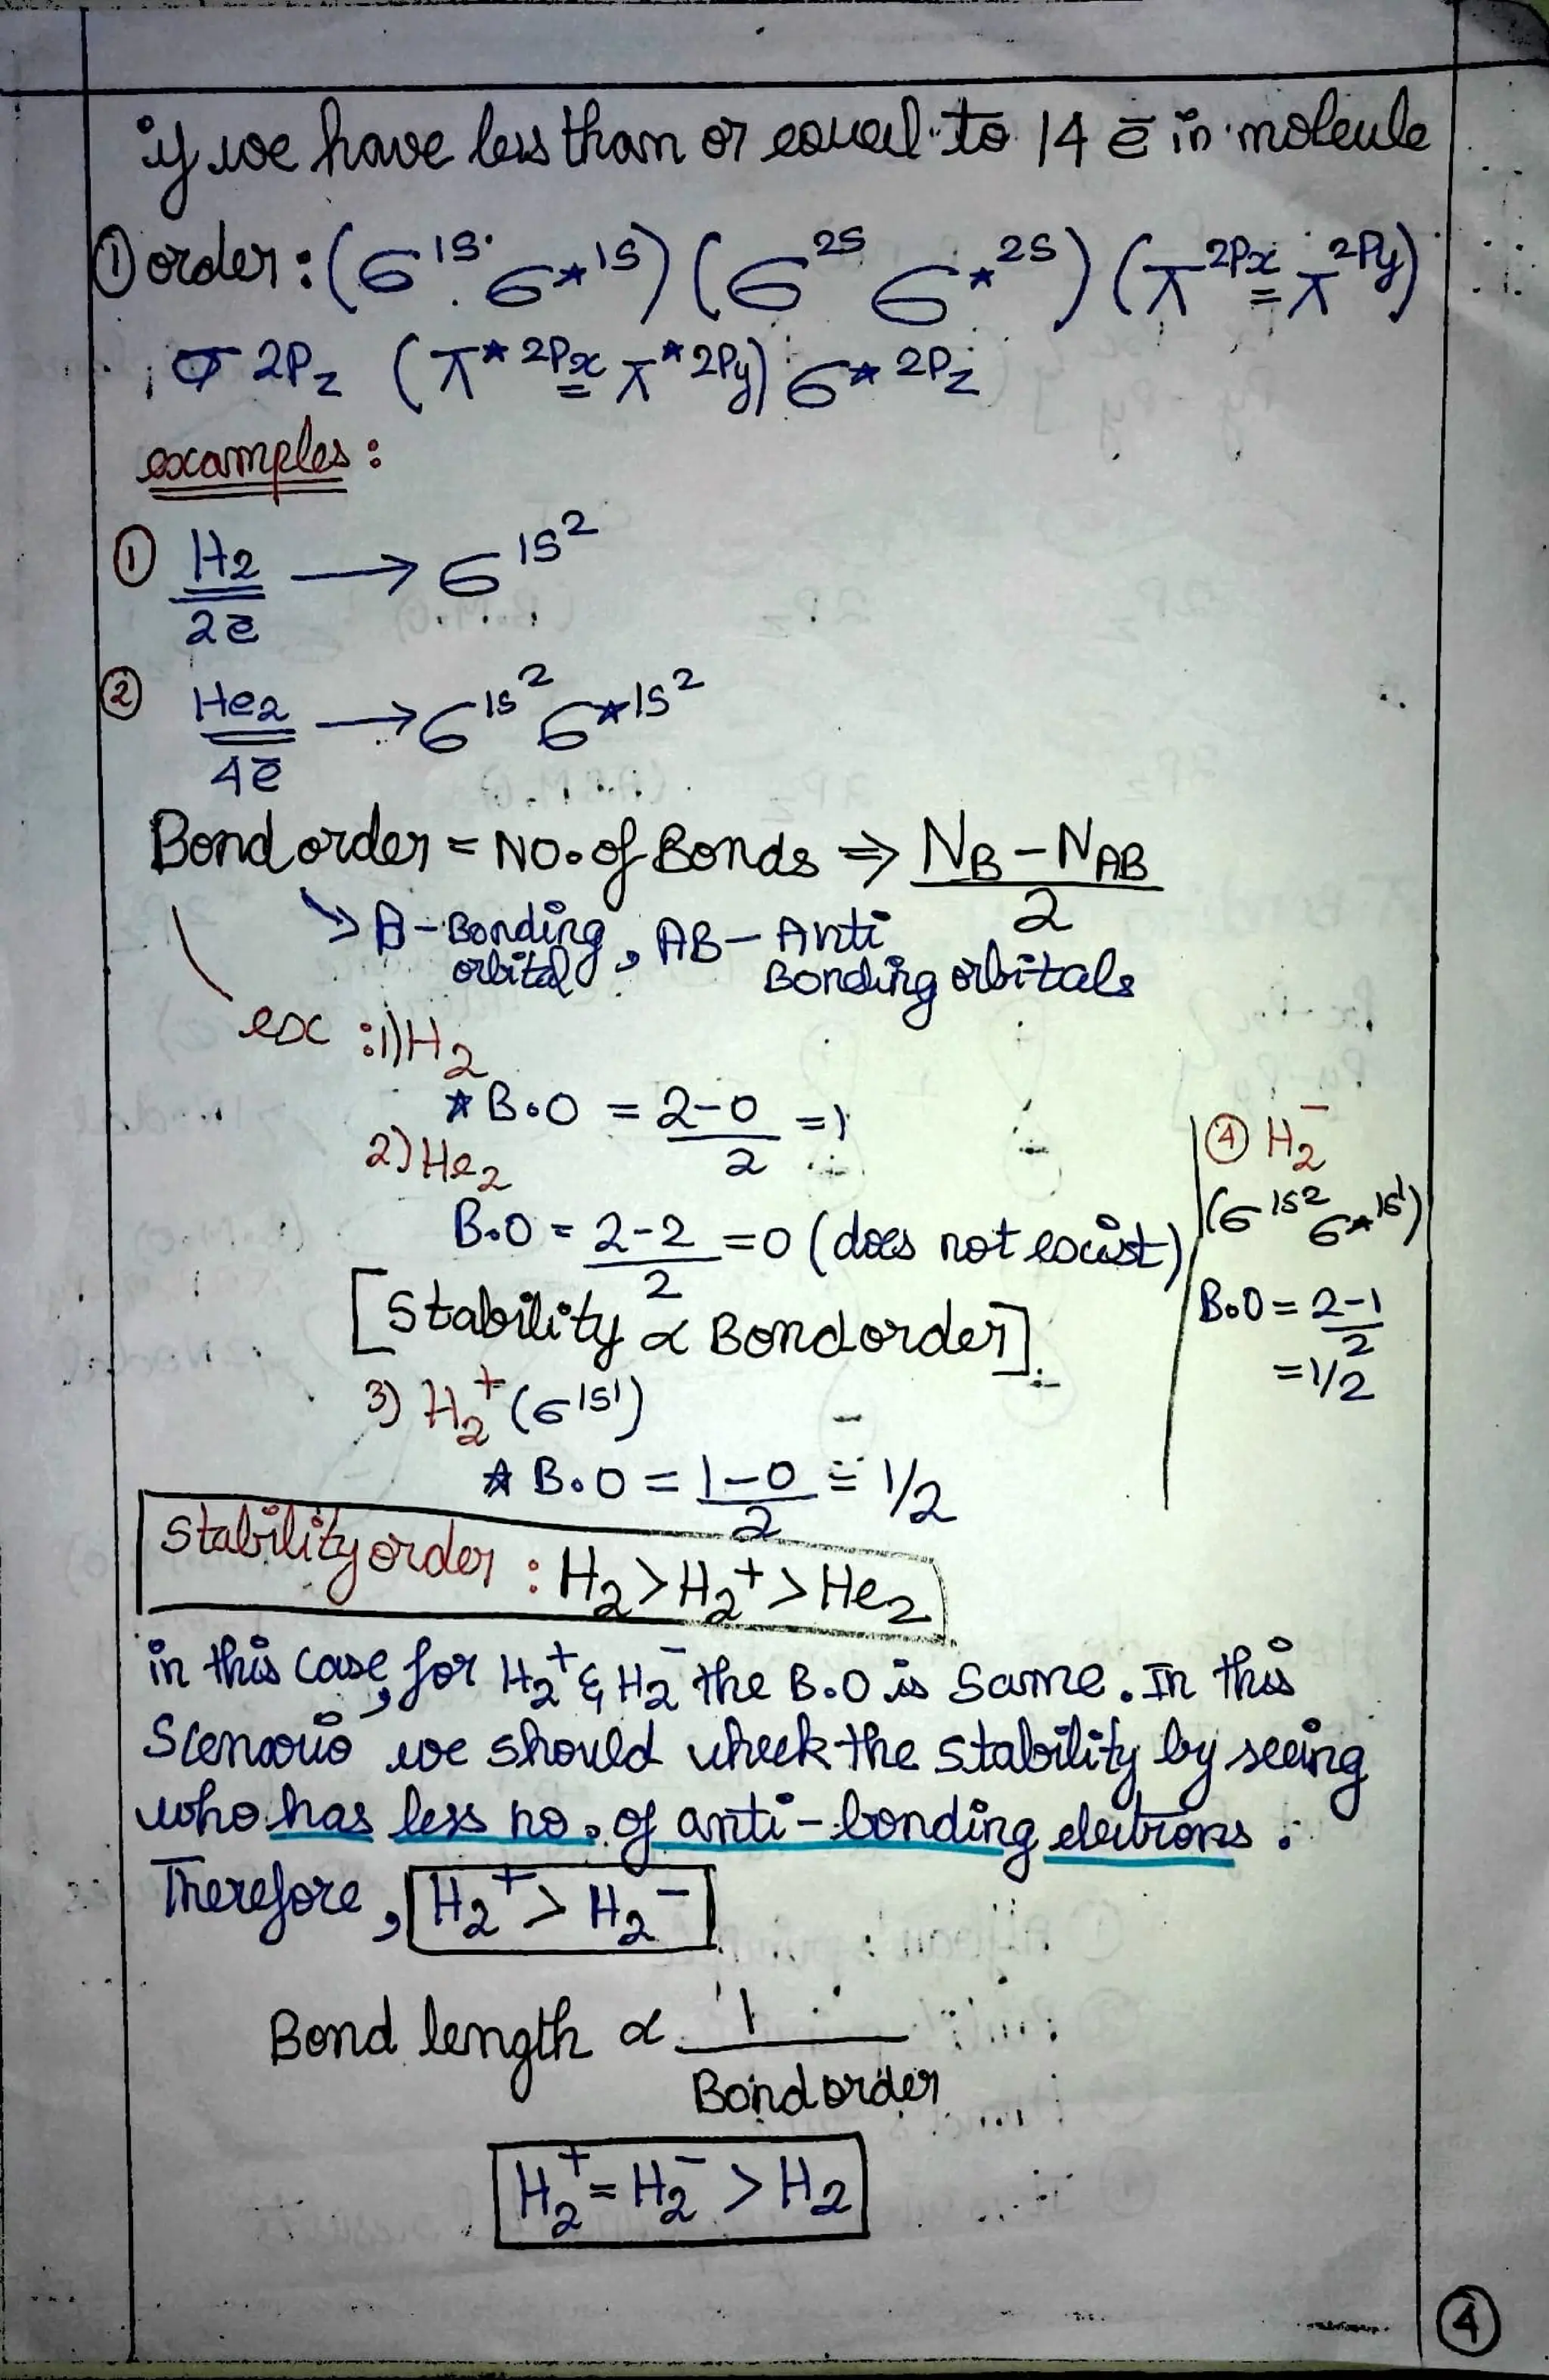 if we have less than or equal to 14 ē in molecule
① order : (σ 1s σ* 1s) (σ 2s σ* 2s) (π 2Px = π 2Py)
, σ 2Pz (π* 2Px = π* 2Py) σ* 2Pz
examples :
① H₂ → σ 1s²
2ē
② He₂ → σ 1s² σ* 1s²
4ē
Bond order = NO. of Bonds ⇒ (N_B - N_AB)/2
→ B - Bonding orbital, AB - Anti Bonding orbitals
ex : 1) H₂
* B.O = (2-0)/2 = 1
2) He₂
B.O = (2-2)/2 = 0 (does not exist)
[Stability ∝ Bond order]
3) H₂⁺ (σ 1s¹)
* B.O = (1-0)/2 = 1/2
④ H₂⁻
(σ 1s² σ* 1s¹)
B.O = (2-1)/2
= 1/2
Stability order : H₂ > H₂⁺ > He₂
in this case, for H₂⁺ & H₂⁻ the B.O is same. In this
Scenario we should check the stability by seeing
who has less no. of anti-bonding electrons.
Therefore, H₂⁺ > H₂⁻
Bond length ∝ 1/Bond order
H₂⁺ = H₂⁻ > H₂
④